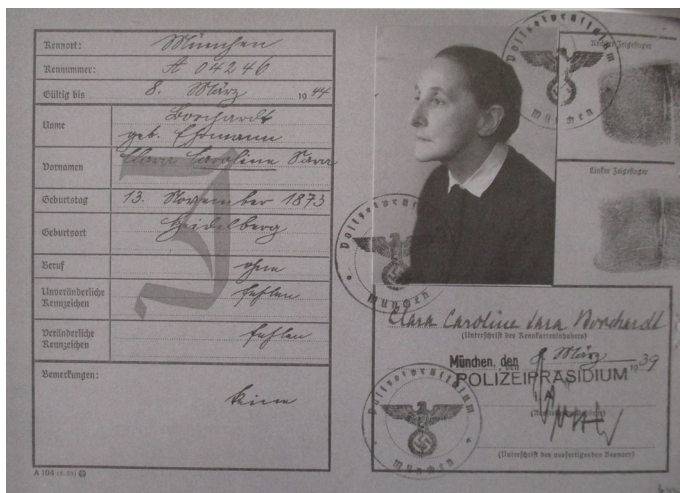 Kennort: München
Kennummer: A 04246
Gültig bis 8. März 1944
Name Borchardt
geb. Ehrmann
Vornamen Clara Caroline Sara
Geburtstag 13. November 1873
Geburtsort Heidelberg
Beruf ohne
Unveränderliche Kennzeichen fehlen
Veränderliche Kennzeichen fehlen
Bemerkungen:
keine
A 104
J
Rechter Zeigefinger
Linker Zeigefinger
Polizeipräsidium
München
Polizeipräsidium
München
Clara Caroline Sara Borchardt
(Unterschrift des Kennkarteninhabers)
München, den 8. März 1939
POLIZEIPRÄSIDIUM
Polizeipräsidium
München
(Unterschrift des ausfertigenden Beamten)